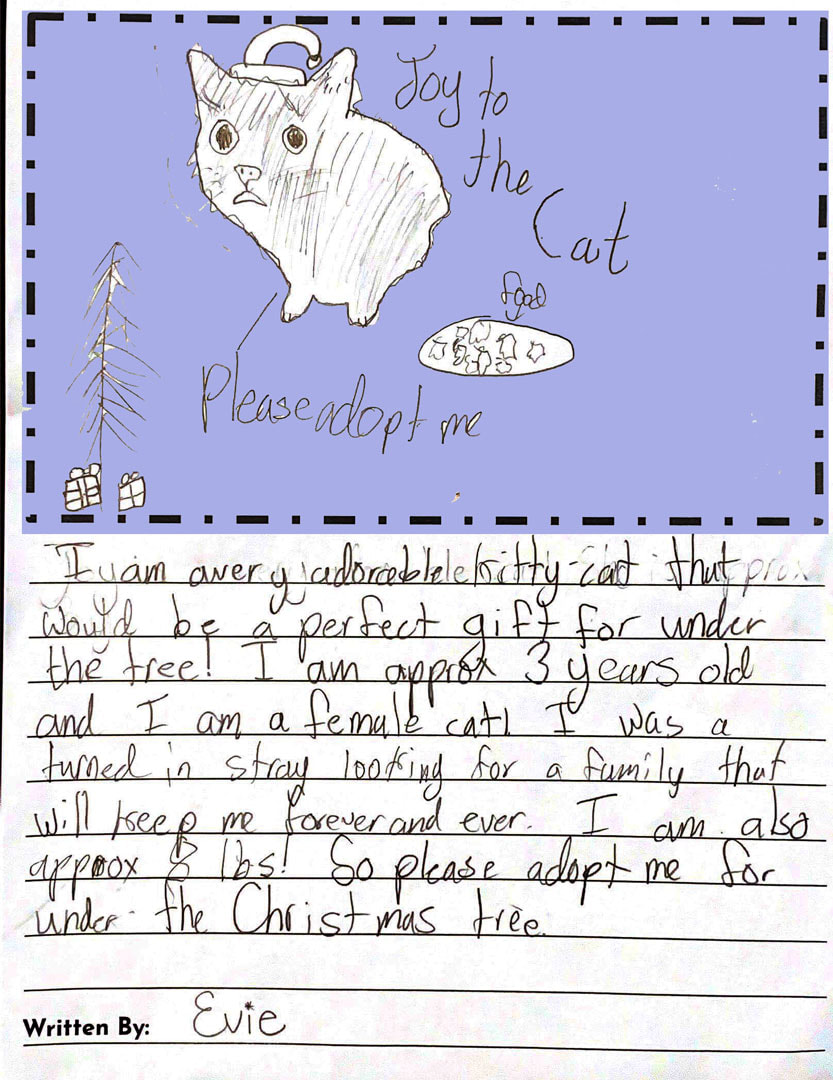 Joy to
the
Cat
food
Please adopt me
I am a very adoreable kitty-cat that
would be a perfect gift for under
the tree! I am approx 3 years old
and I am a female cat! I was a
turned in stray looking for a family that
will keep me forever and ever. I am also
approx 8 lbs! So please adopt me for
under the Christmas tree.
Written By: Evie